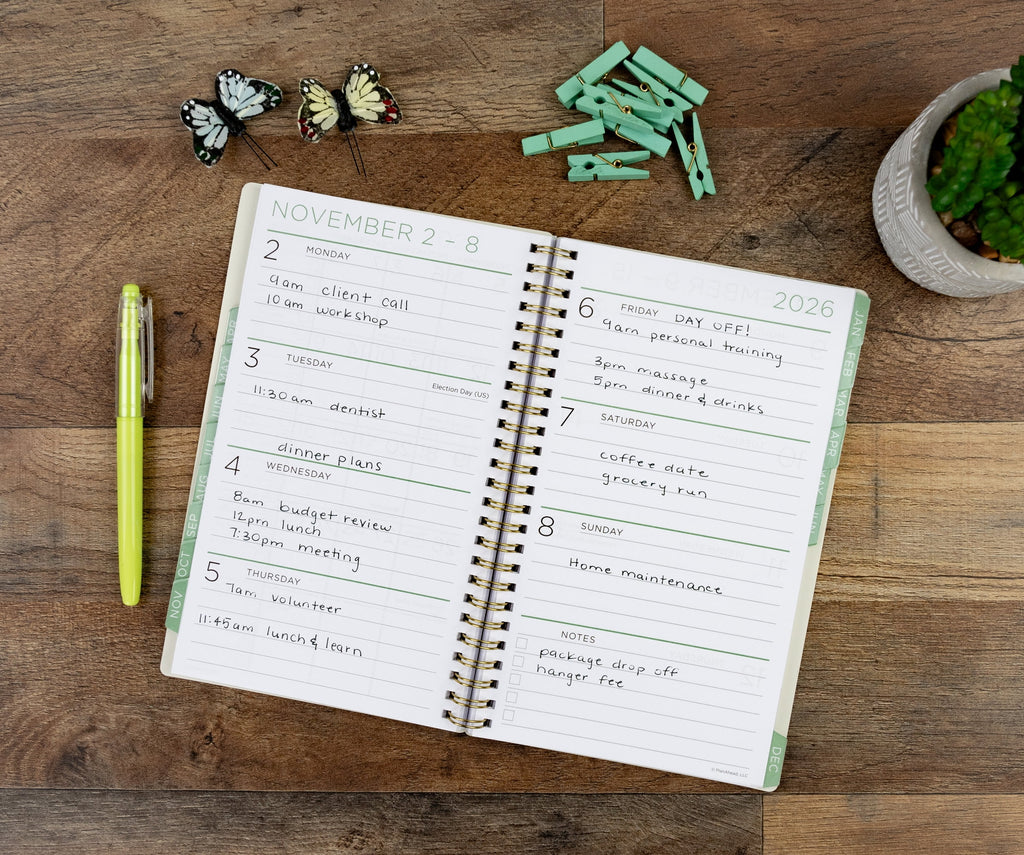 NOVEMBER 2 - 8
2 MONDAY
9am client call
10am workshop
3 TUESDAY
Election Day (US)
11:30am dentist
dinner plans
4 WEDNESDAY
8am budget review
12pm lunch
7:30pm meeting
5 THURSDAY
7am volunteer
11:45am lunch & learn
2026
6 FRIDAY DAY OFF!
9am personal training
3pm massage
5pm dinner & drinks
7 SATURDAY
coffee date
grocery run
8 SUNDAY
Home maintenance
NOTES
package drop off
hanger fee
© PlanAhead, LLC
APR
MAY
JUN
JUL
AUG
SEP
OCT
NOV
JAN
FEB
MAR
APR
MAY
JUN
DEC